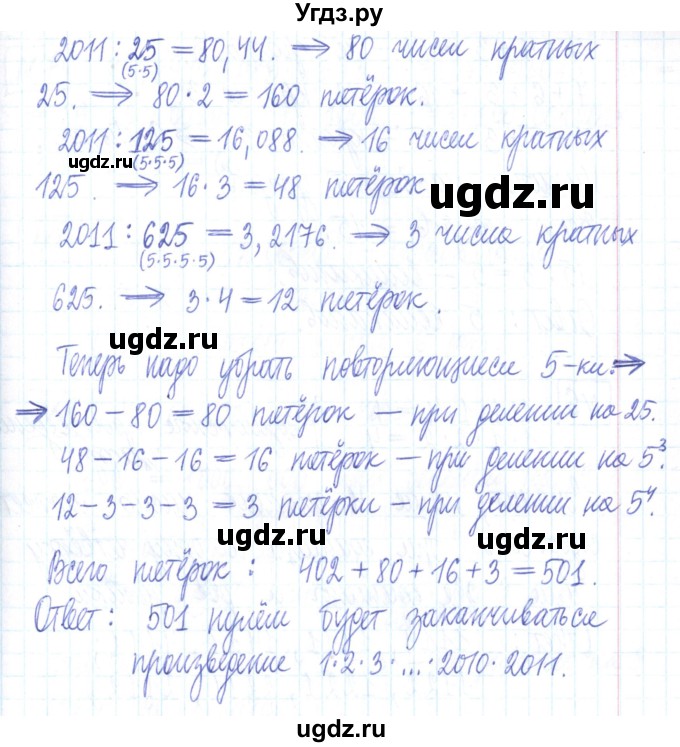 Угдз.ру
2011 : 25 = 80,44. ⇒ 80 чисел кратных
(5·5)
25. ⇒ 80 · 2 = 160 пятёрок.
2011 : 125 = 16,088. ⇒ 16 чисел кратных
ugdz.ru (5·5·5)
125. ⇒ 16 · 3 = 48 пятёрок
ugdz.ru
2011 : 625 = 3,2176. ⇒ 3 числа кратных
(5·5·5·5)
625. ⇒ 3 · 4 = 12 пятёрок.
ugdz.ru
Теперь надо убрать повторяющиеся 5-ки. ⇒
⇒ 160 – 80 = 80 пятёрок – при делении на 25.
48 – 16 – 16 = 16 пятёрок – при делении на 5³.
12 – 3 – 3 – 3 = 3 пятёрки – при делении на 5⁴.
ugdz.ru
ugdz.ru
Всего пятёрок : 402 + 80 + 16 + 3 = 501.
Ответ : 501 нулём будет заканчиваться
произведение 1·2·3·...·2010·2011.
ugdz.ru
ugdz.ru